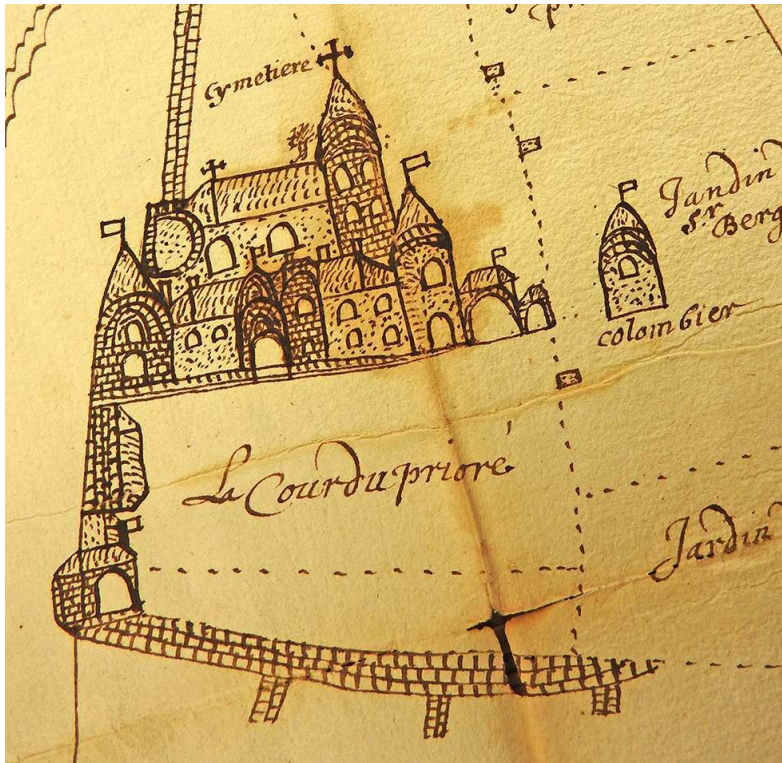 cymetiere
Jardin
sr Berg
colombier
La Cour du prioré
Jardin